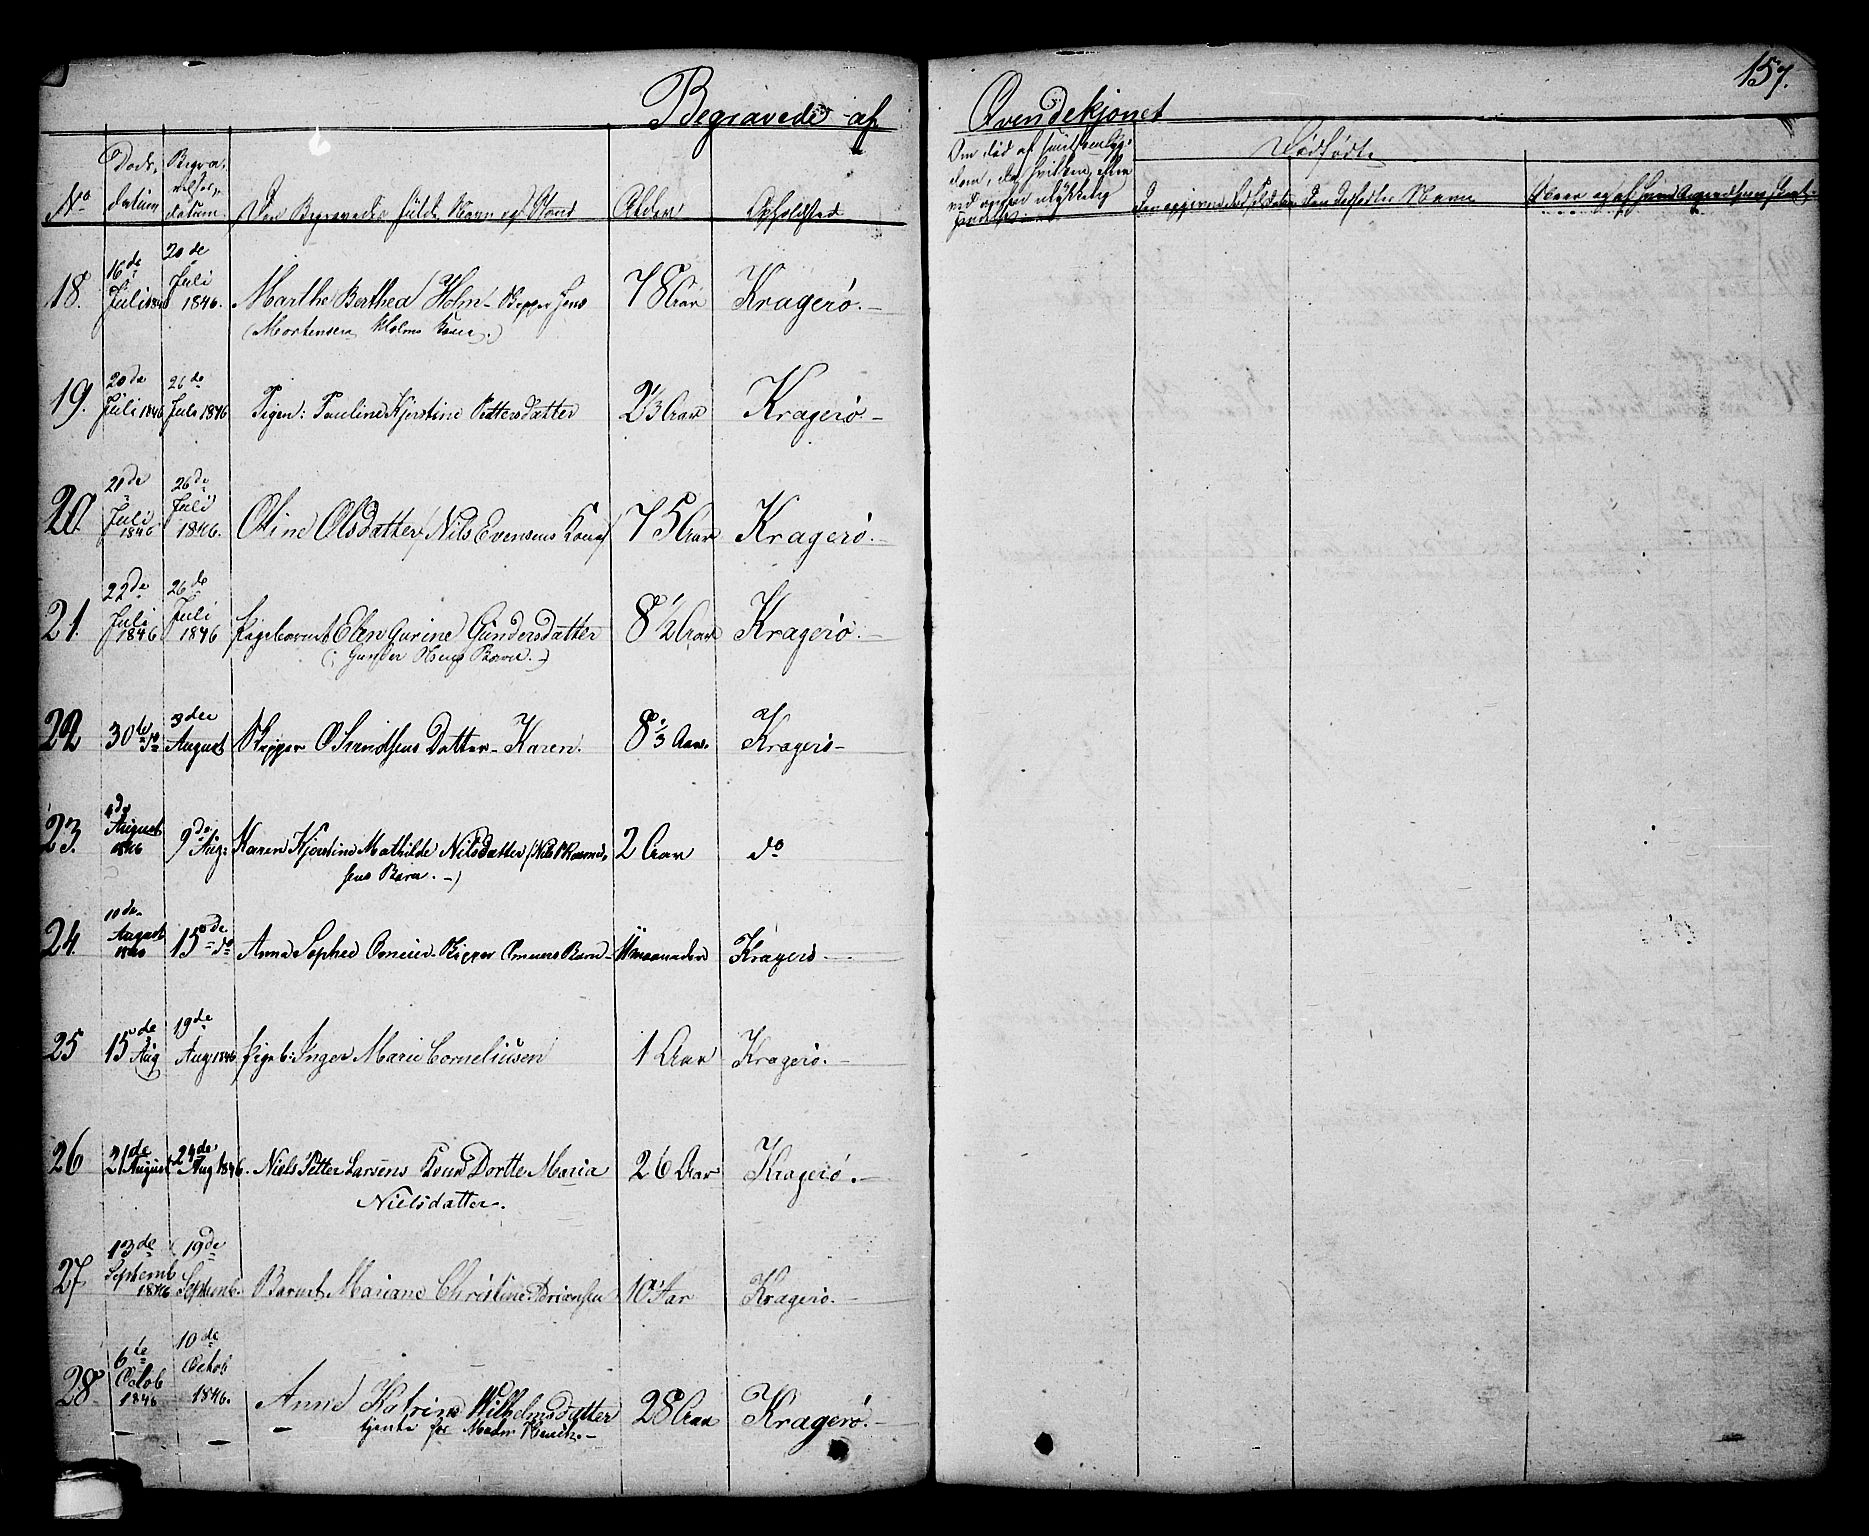 157.
Begravede af Qvendekjønet
No
Døds-
datum
Begra-
velses-
datum
Den Begravedes fulde Navn og Stand
Alder
Opholdsted
Om død af smitsom Syg-
dom, da hvilken, eller
ved nogen ulykkelig
Dødfødte
18.
16de
Juli 1846
20de
Juli
1846.
Marthe Berthea Holm - Skipper Jens
(Mortensen Holms Kone.)
78 Aar
Kragerø.-
19.
20de
Juli 1846
26de
Juli 1846
Pigen: Pauline Kjerstine Pettersdatter
2 1/3 Aar
Kragerø.-
20.
21de
Juli
1846
26de
Juli
1846.
Oline Olsdatter (Nils Evensens Kone)
75 Aar
Kragerø.-
21.
22de
Juli
1846
26de
Juli
1846
Pigebarnet Elen Gurine Gundersdatter
(: Gunder Barn.-)
8 1/2 Aar
Kragerø.-
22
30te do
3die
August
Skipper Datter - Karen.
8 1/3 Aar.
Kragerø-
23.
4de
August
1846
9de Aug:
Karen Kjerstine Mathilde Nilsdatter (Nils
sens Barn.-)
2 Aar
do
24.
10de
August
1846
15de do
Anne Sophie Skipper Barn-
11 maaneder
Kragerø-
25
15de
Aug
19de
Aug 1846
Pigeb: Inger Marie Corneliusen
1 Aar
Kragerø.-
26
21de
August
24de
Aug 1846.
Niels Petter Larsens Kone Dortte Maria
Nielsdatter.
26 Aar
Kragerø.-
27
13de
Septemb
1846
19de
Septemb.
Barnet Mariane Christine
10 Aar
Kragerø.-
28
6de
Octob
1846
10de
Octob
1846.
Anne Katrine Wilhelmsdatter
tjente for Madm
28 Aar
Kragerø.-